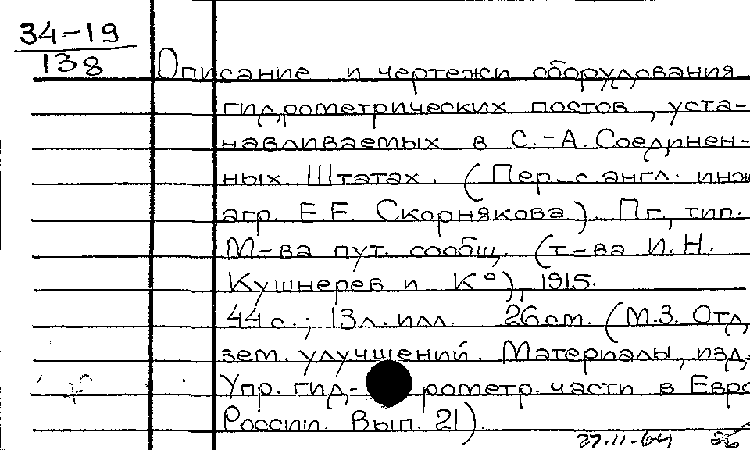 34-19
138
Описание и чертежи оборудования
гидрометрических постов, уста-
навливаемых в С.-А. Соединен-
ных Штатах. (Пер. с англ. инж
агр. Е.Е. Скорнякова). Пг, тип.
М-ва пут. сообщ. (т-ва И.Н.
Кушнерев и К°), 1915.
44 с.; 13 л. илл. 26 см. (М.З. Отд.
зем. улучшений. Материалы, изд.
Упр. гид-рометр. части в Евро
России. Вып. 21).
27.11-64